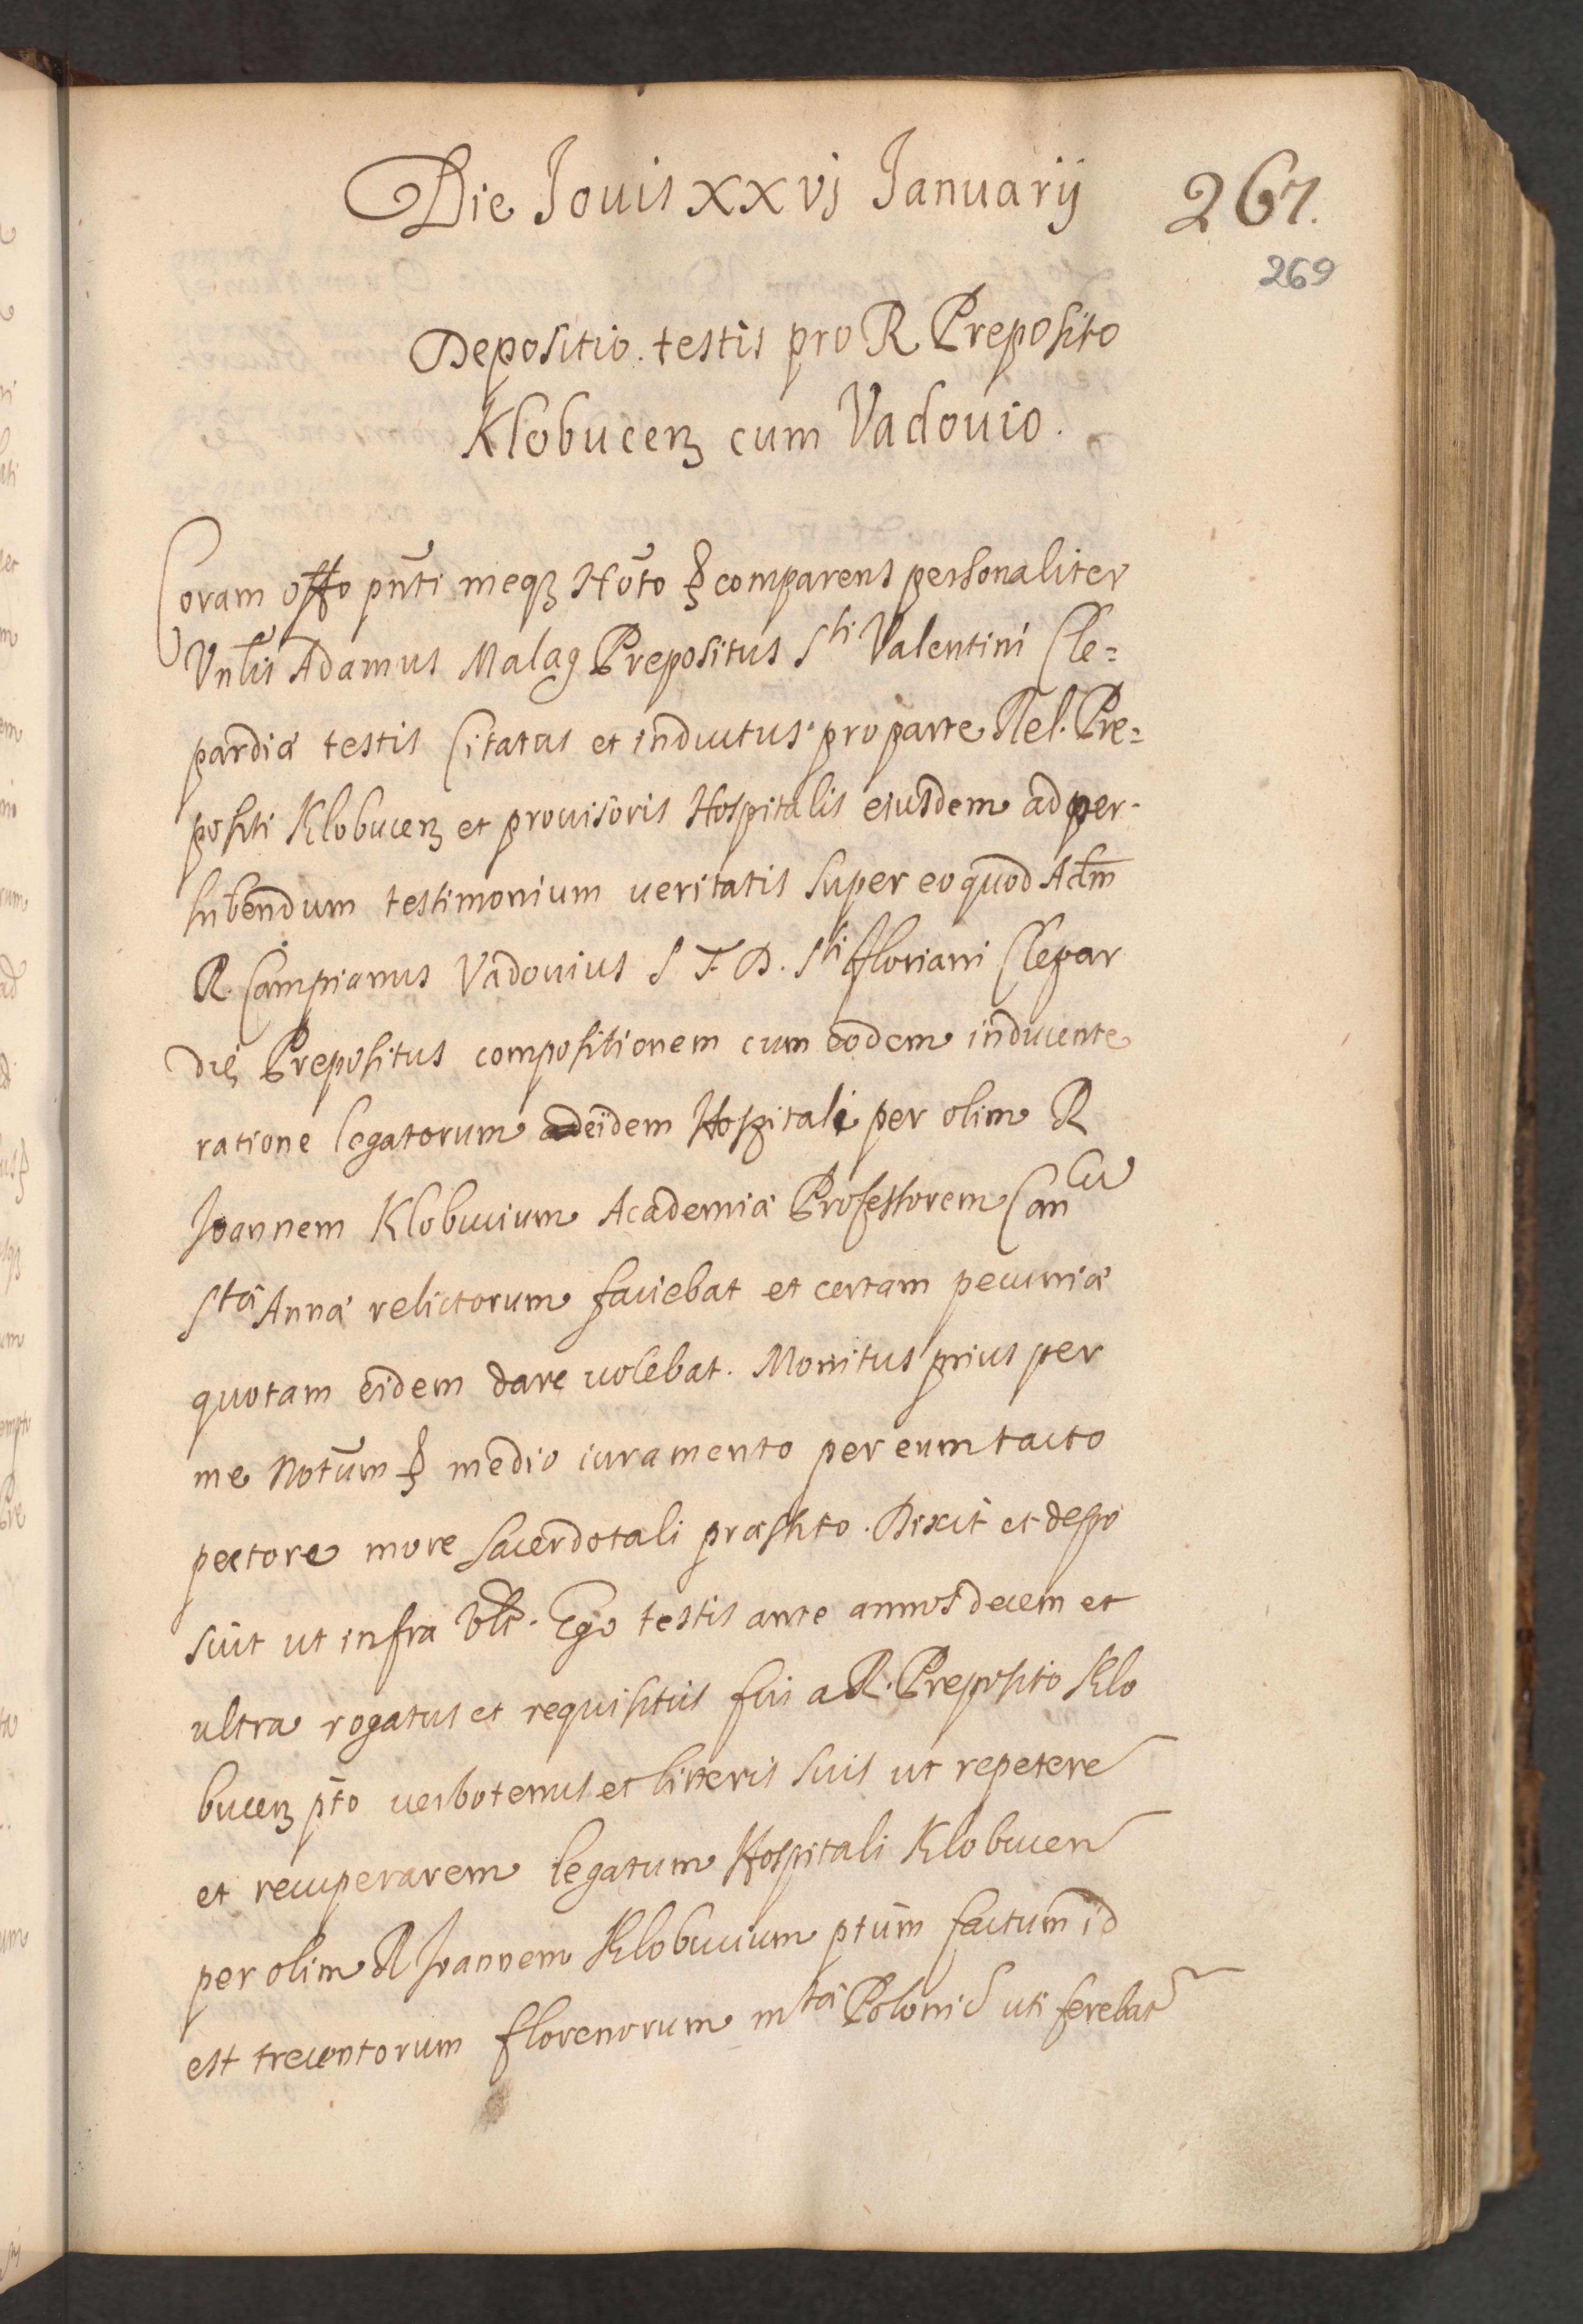 Die Jouis xxvj Januarij
267.
269
Depositio testis pro R Preposito
Klobucen cum Vadouio.
Coram offo pnti meqз Noto & comparens personaliter
Vnlis Adamus Malag Prepositus Sti Valentini Cle=
pardiæ testis Citatus et inductus pro parte Rel. Pre=
positi Klobucen et prouisoris Hospitalis eiusdem ad per-
hibendum testimonium ueritatis super eo quod Adm
R. Campianus Vadouius S T. D. Sti Floriani Clepar
dię Prepositus compositionem cum eodem inducente
ratione legatorum eidem Hospitali per olim R
Joannem Klobucium Academiæ Professorem Can
Stæ Annæ relictorum faciebat et certam pecuniæ
quotam eidem dare uolebat. Monitus prius per
me Notum & medio iuramento per eum tacto
pectore more sacerdotali præstito. Dixit et depo
suit ut infra vlt. Ego testis ante annos decem et
ultra rogatus et requisitus fui a R. Preposito Klo
bucen pto uerbotenus et litteris suis ut repetere
et recuperarem legatum Hospitali Klobucen
per olim R Joannem Klobucium ptum factum id
est trecentorum florenorum mtæ Polonic uti ferebat